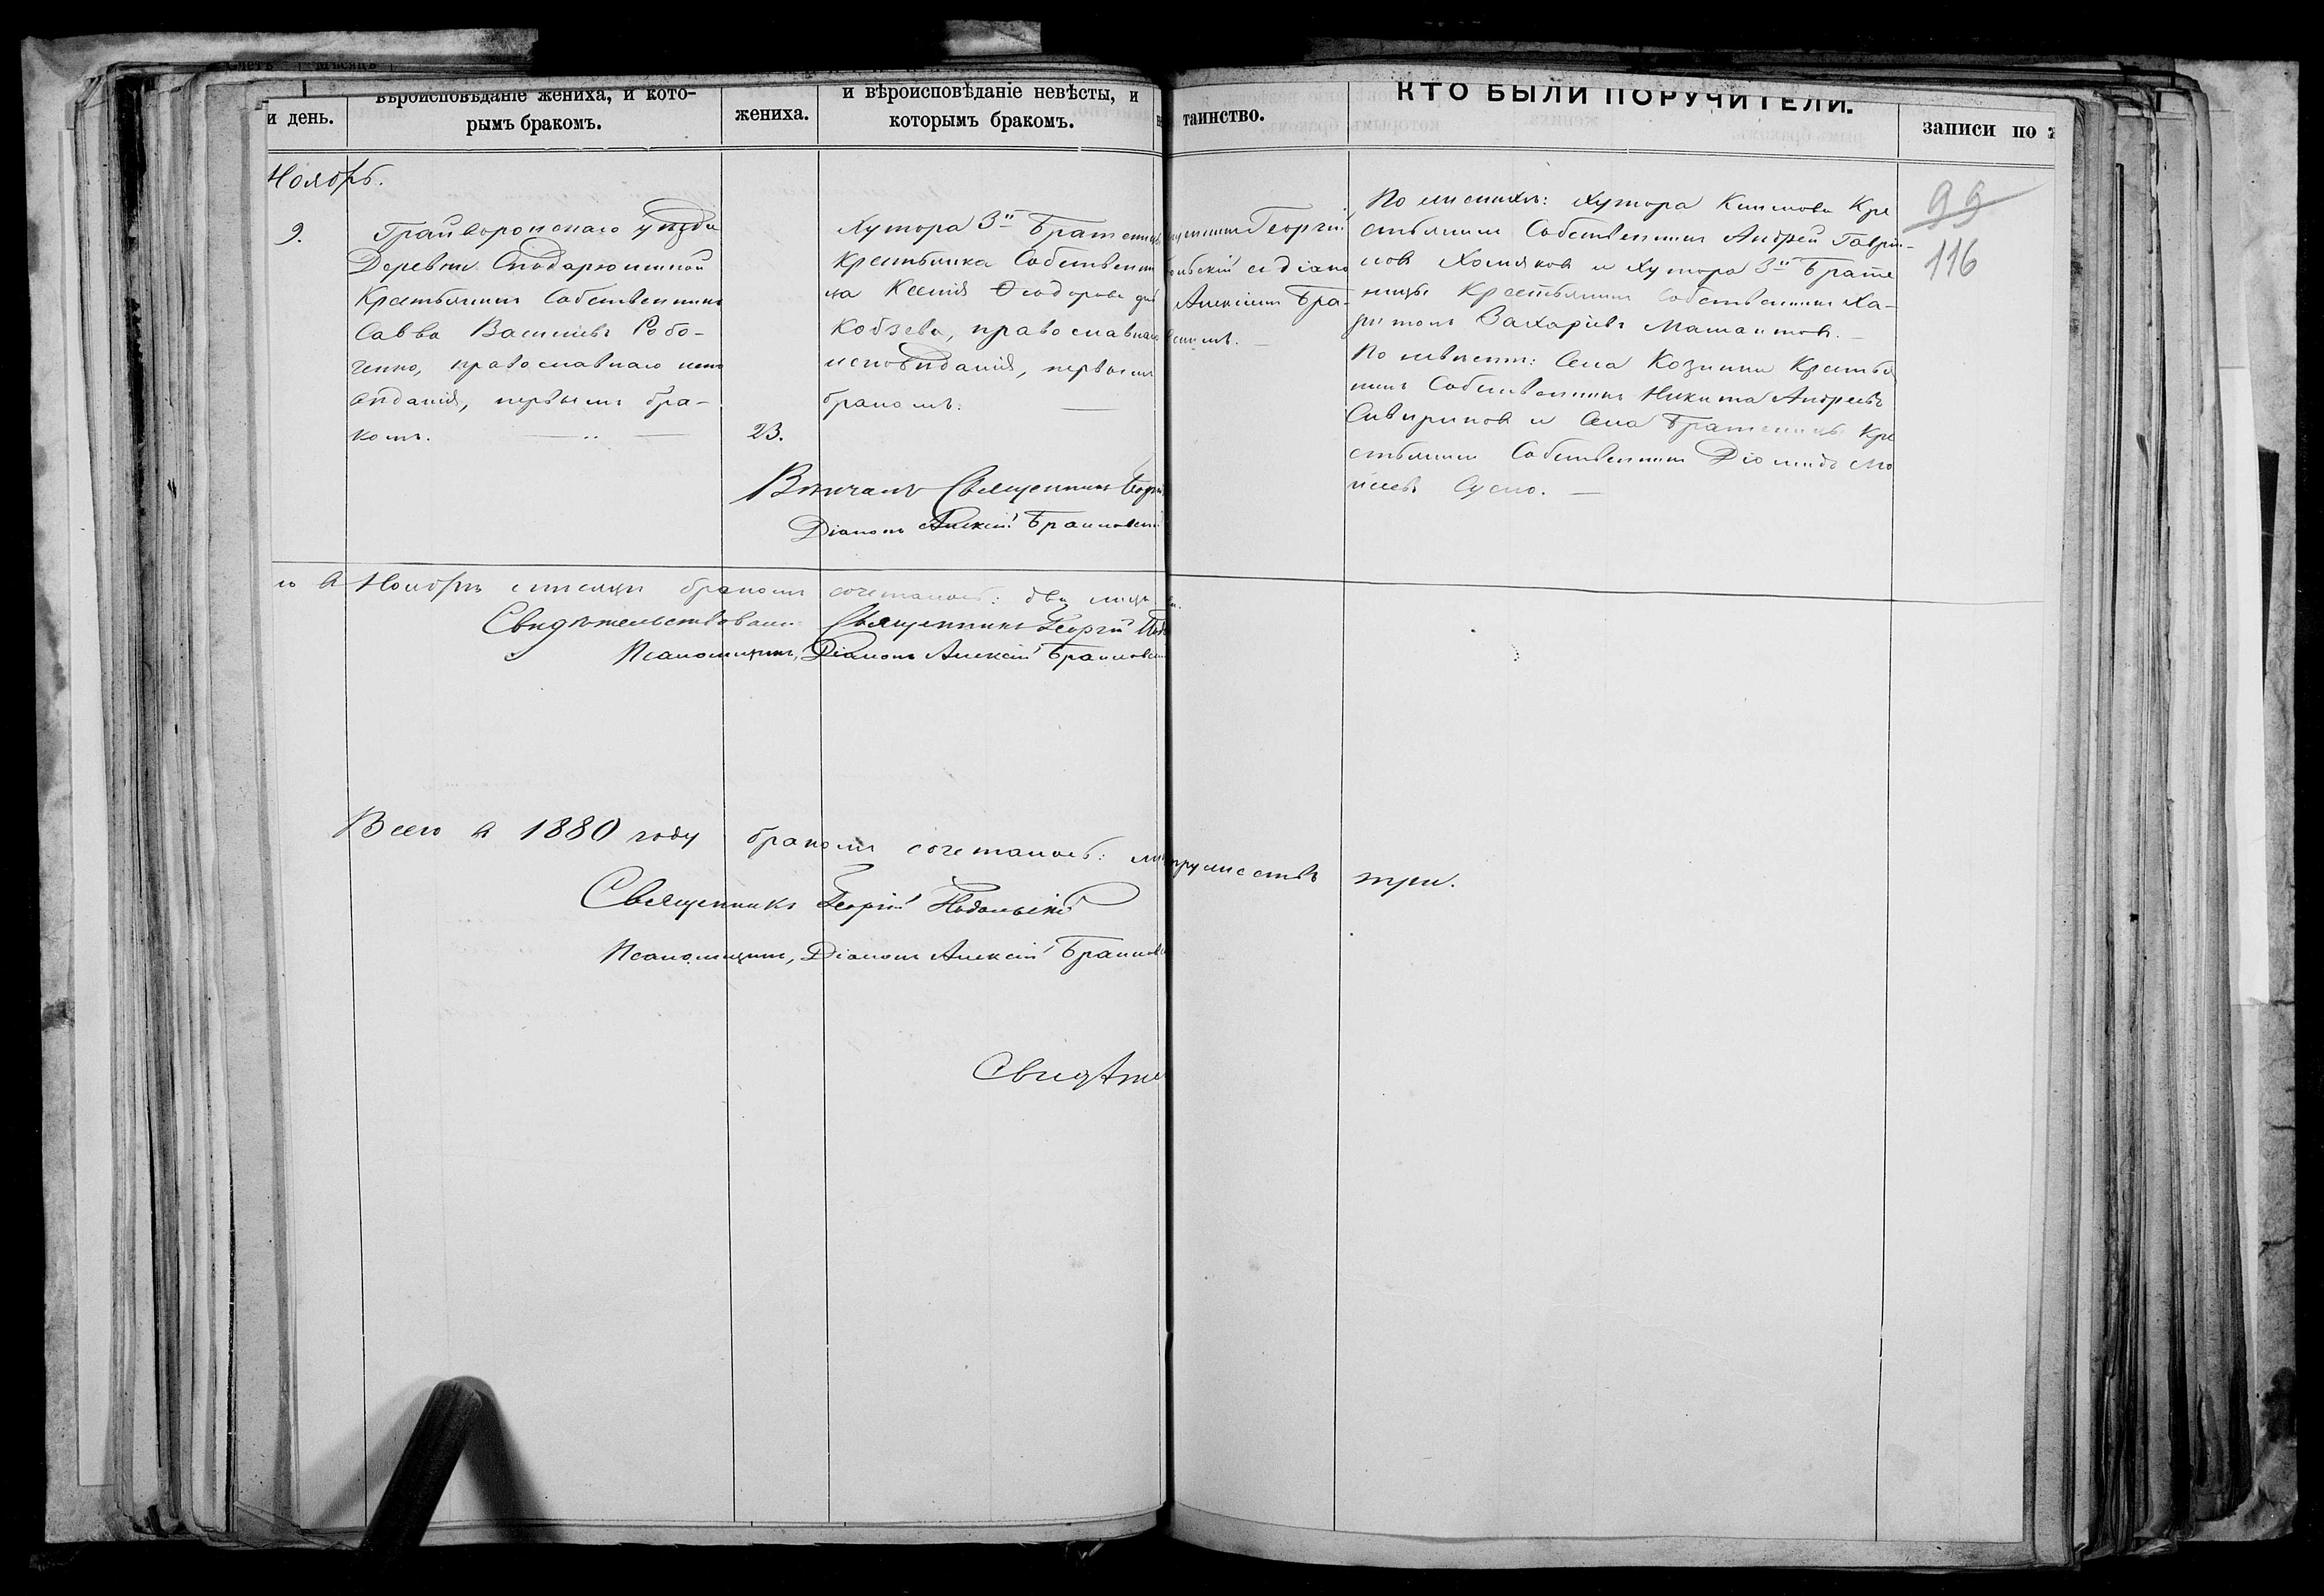 Счетъ Мѣсяцъ
и день.
вѣроисповѣданіе жениха, и кото-
рымъ бракомъ.
жениха.
и вѣроисповѣданіе невѣсты, и
которымъ бракомъ.
таинство.
КТО БЫЛИ ПОРУЧИТЕЛИ.
записи по
Ноябрь.
9.
Грайворонскаго уѣзда
Деревни
Крестьянинъ Собственникъ
Савва Васильевъ Робо-
ченко, православнаго испо
вѣданія, первымъ бра-
комъ.
23.
Хутора 3й Братениц
Крестьянка Собственни
ца Ксенія Ѳеодорова
Кобзева, православнаго
исповѣданія, первымъ
бракомъ.
Георгій
ольскій и діако
Алексіемъ Бра-
По женихѣ: Хутора Климова Кре
стьянинъ Собственникъ Андрей Гаврі-
ловъ Хомяковъ и Хутора 3й Брате
ницы Крестьянинъ Собственникъ Ха-
ритонъ Захаріевъ
По невѣстѣ: Села Козинки Крестья
нинъ Собственникъ Никита Андреевъ
и Села Братеницъ Кре
стьянинъ Собственникъ Діомидъ Мо
исеевъ
99
116
Вѣнчалъ Священникъ Георгій
Діаконъ Алексій Браиловскій
въ Ноябрѣ мѣсяцѣ бракомъ сочеталось: два лица
Свидѣтельствовали: Священникъ Георгій Подо
Псаломщикъ, Діаконъ Алексій Браиловск
Всего въ 1880 году бракомъ сочеталось: три.
Священникъ Георгій Подольскій
Псаломщикъ, Діаконъ Алексій Браиловс
Свидѣте